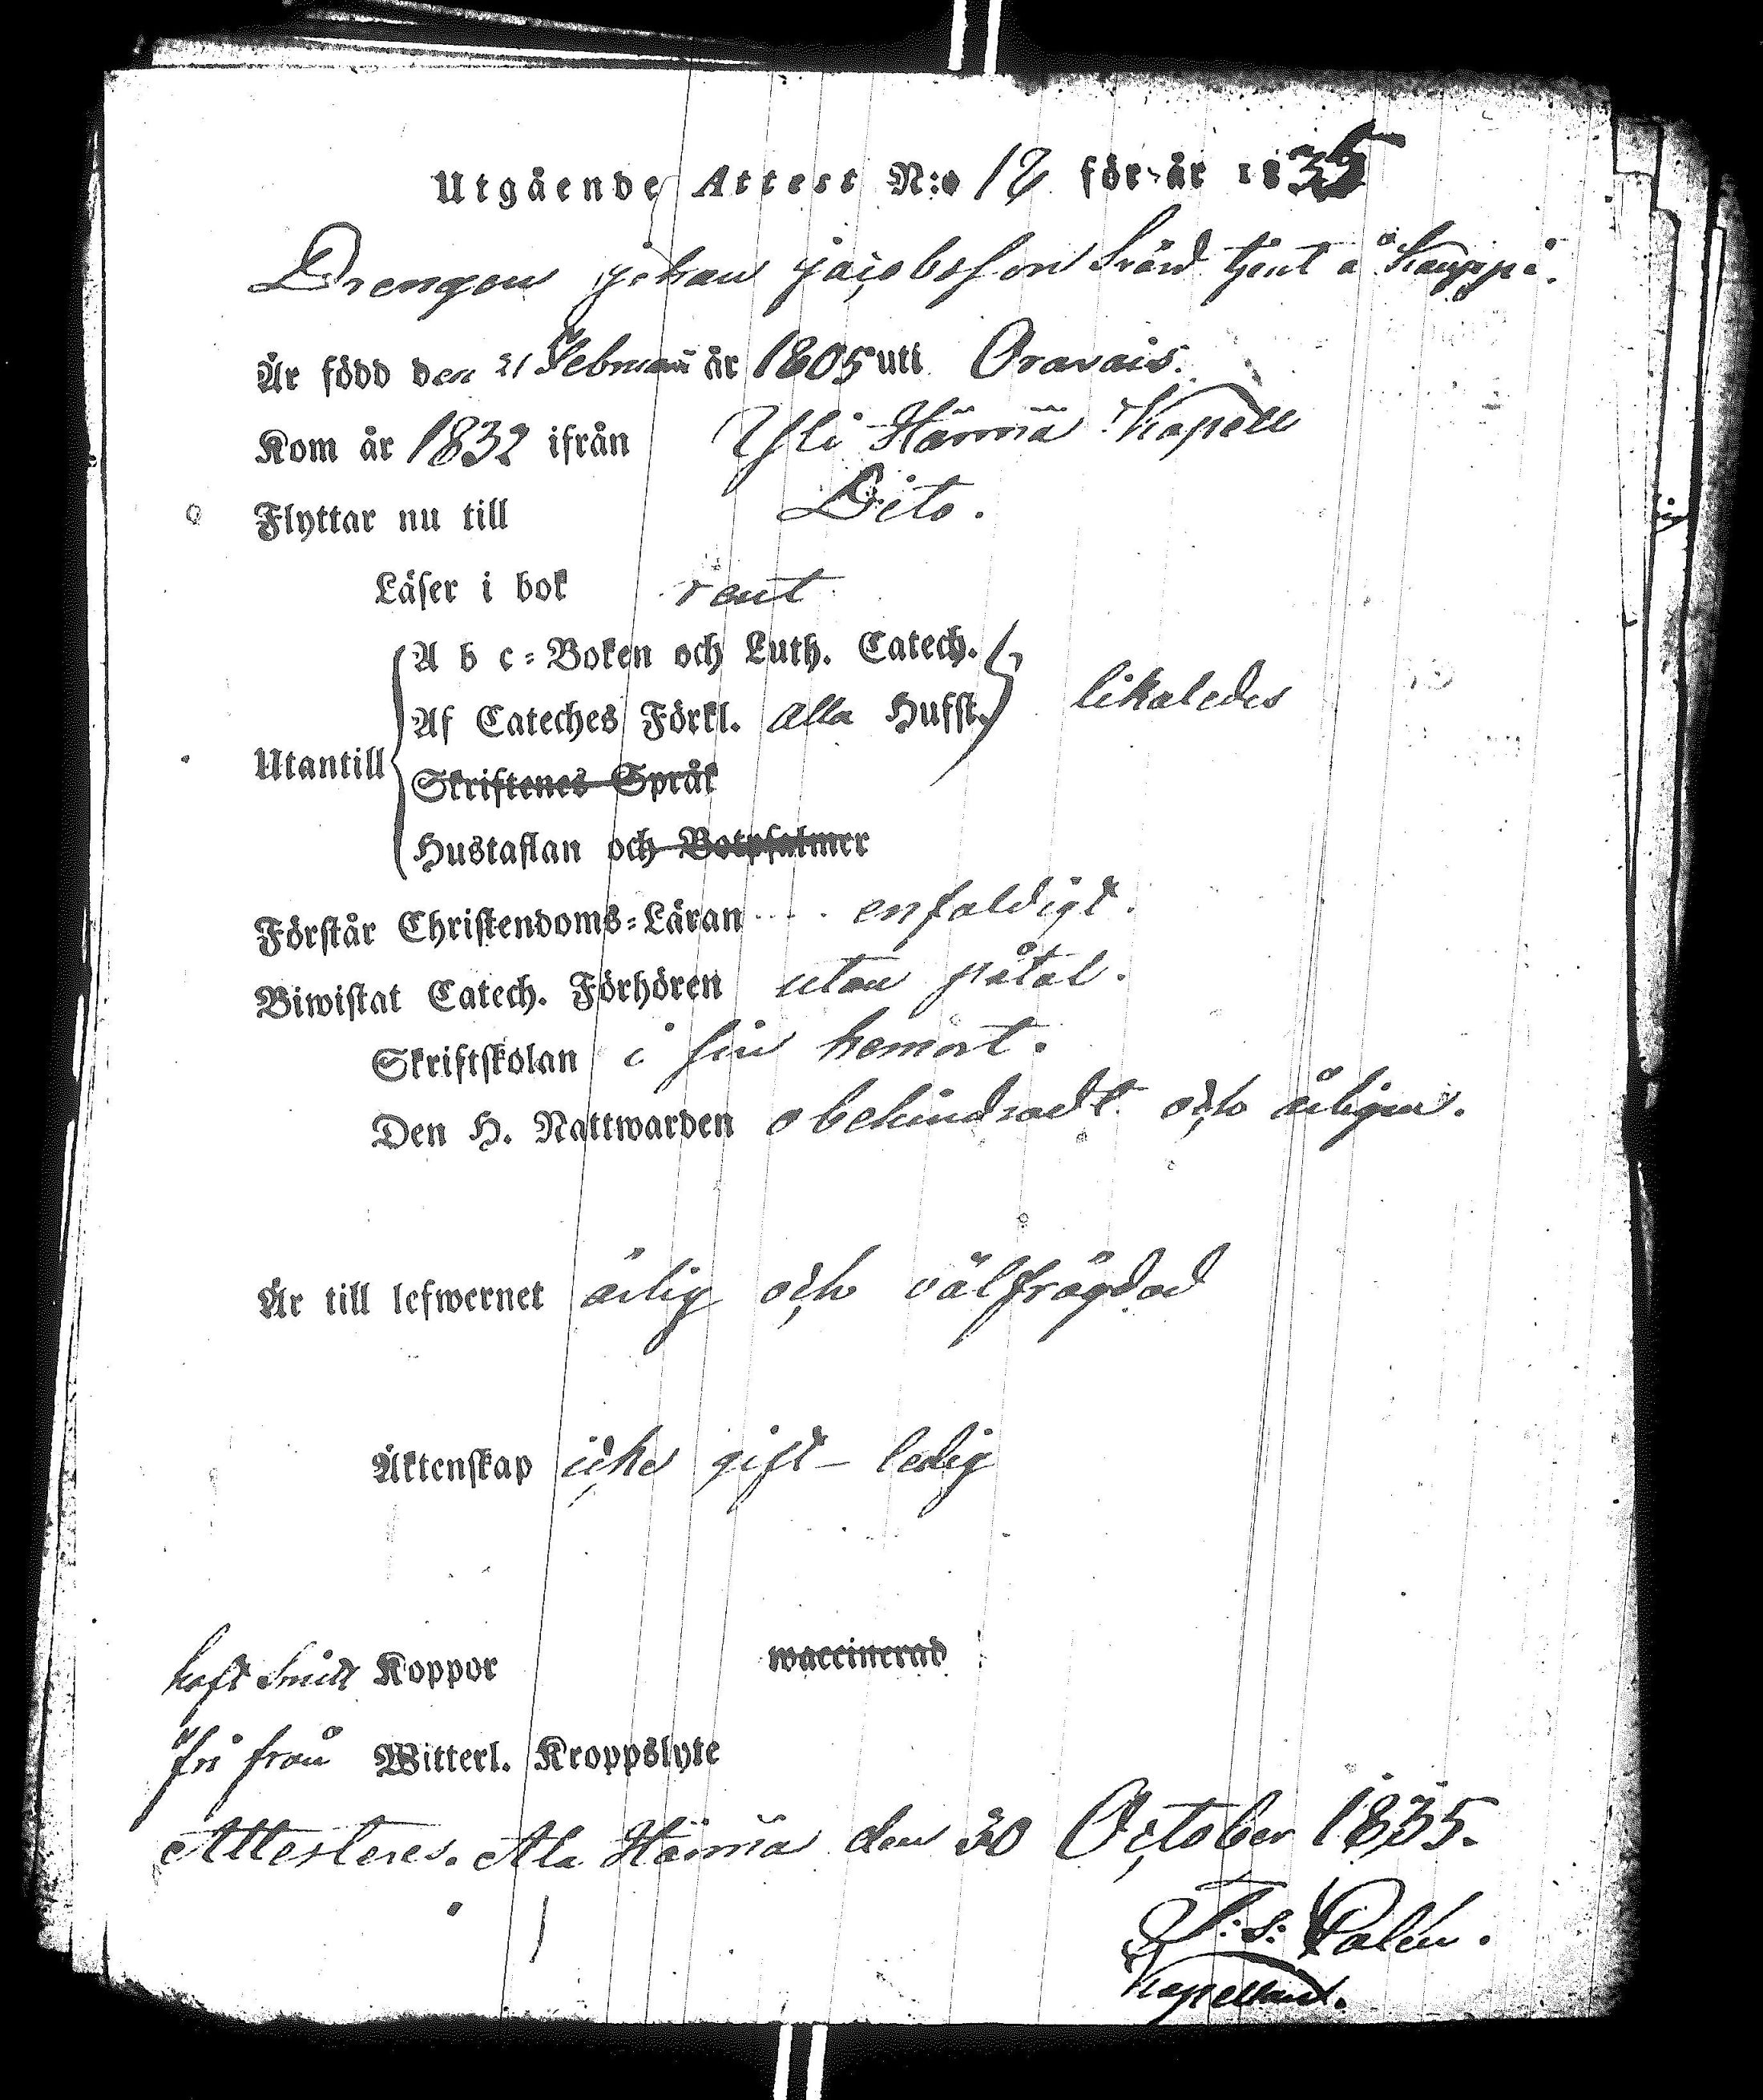 Utgående Attest N:o 12 för år 1835
Drengen Johan Jacobsson Svärd tjent å Kauppi.
Är född den 21 Februarii år 1805 uti Oravais.
Kom år 1832 ifrån Yli Härmä Kapell
Flyttar nu till Dito.
Läser i bok rent
A b c-Boken och Luth. Catech.
Af Cateches Förkl. alla Hufst. likaledes
Utantill
Skriftenes Språk
Hustaflan och Botpsalmer
Förstår Christendoms-Läran enfaldigt.
Biwistat Catech. Förhören utan påtal.
Skriftskolan i sin hemort.
Den H. Nattwarden obehindradt och årligen.
Är till lefwernet ärlig och välfrägdad
Äktenskap icke gift - ledig
haft Koppor waccinerad
fri från Witterl. Kroppslyte
Attesteres. Ala Härmä den 30 October 1835.
Kapellan.